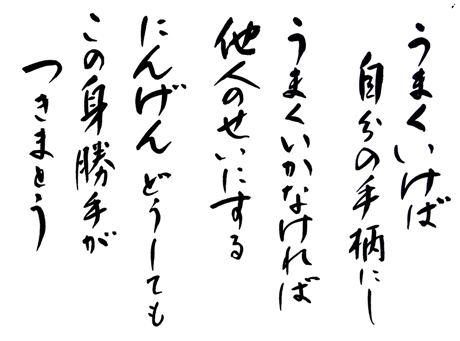 うまくいけば
自分の手柄にし
うまくいかなければ
他人のせいにする
にんげん どうしても
この身勝手が
つきまとう